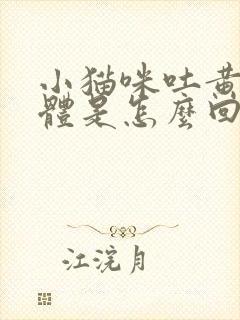 小猫咪吐黄
體是怎麼回
江浣月